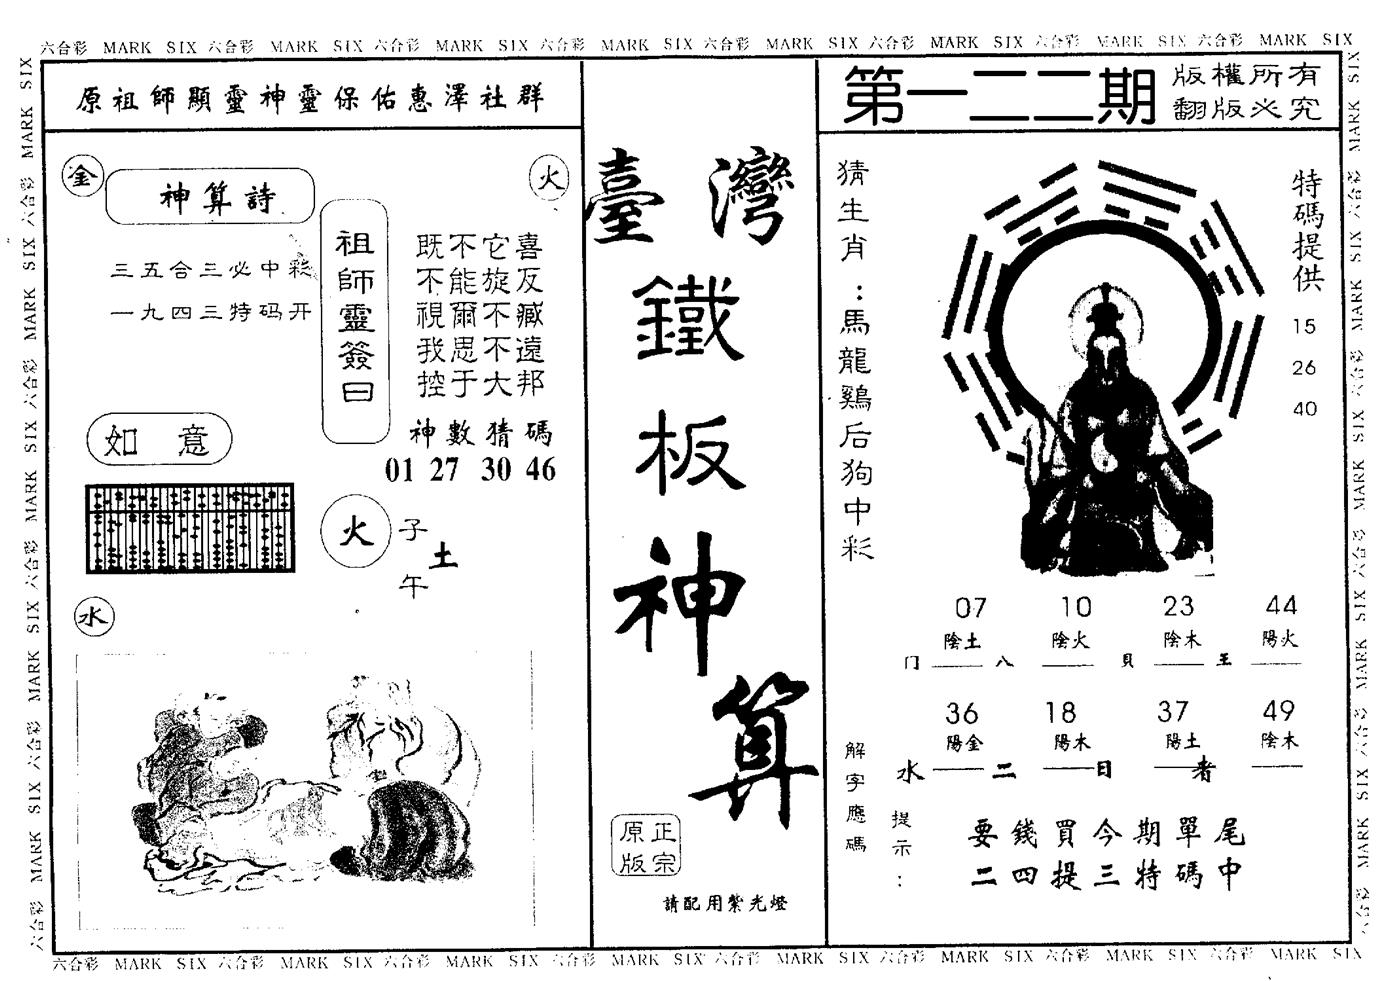 六合彩 MARK SIX 六合彩 MARK SIX 六合彩 MARK SIX 六合彩 MARK SIX 六合彩 MARK SIX 六合彩 MARK SIX 六合彩 MARK SIX 六合彩 MARK SIX
原祖師顯靈神靈保佑惠澤社群
金
神算詩
火
三五合三必中彩
一九四三特码开
祖師靈簽曰
既不它喜
不能旋反
視爾不臧
我思不遠
控于大邦
神數猜碼
01 27 30 46
如意
火
子
土
午
水
臺灣
鐵
板
神
算
正宗
原版
請配用紫光燈
第一二二期
版權所有
翻版必究
猜生肖：馬龍鷄后狗中彩
特碼提供
15
26
40
07 10 23 44
陰土 陰火 陰木 陽火
门 八 貝 王
36 18 37 49
陽金 陽木 陽土 陰木
水 二 日 者
解字應碼
提示：
要錢買今期單尾
二四提三特碼中
六合彩 MARK SIX 六合彩 MARK SIX 六合彩 MARK SIX 六合彩 MARK SIX 六合彩 MARK SIX 六合彩 MARK SIX 六合彩 MARK SIX 六合彩 MARK SIX